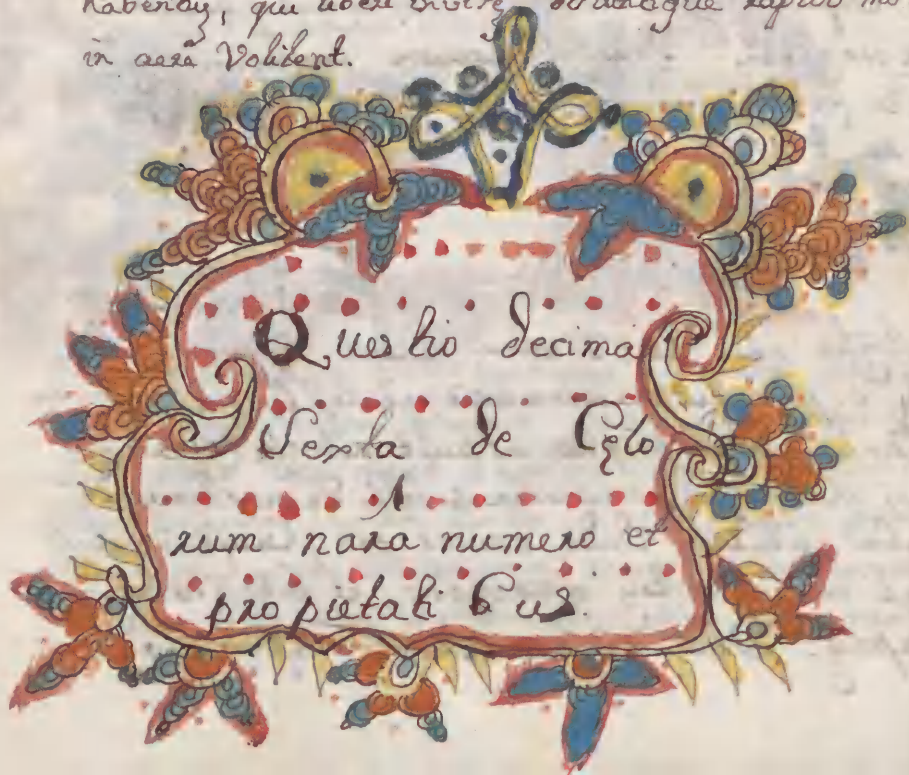 habenas, qui
in aera Volitent.
Questio decima
Sexta de Cęlo
rum nara numero et
propietatibus.